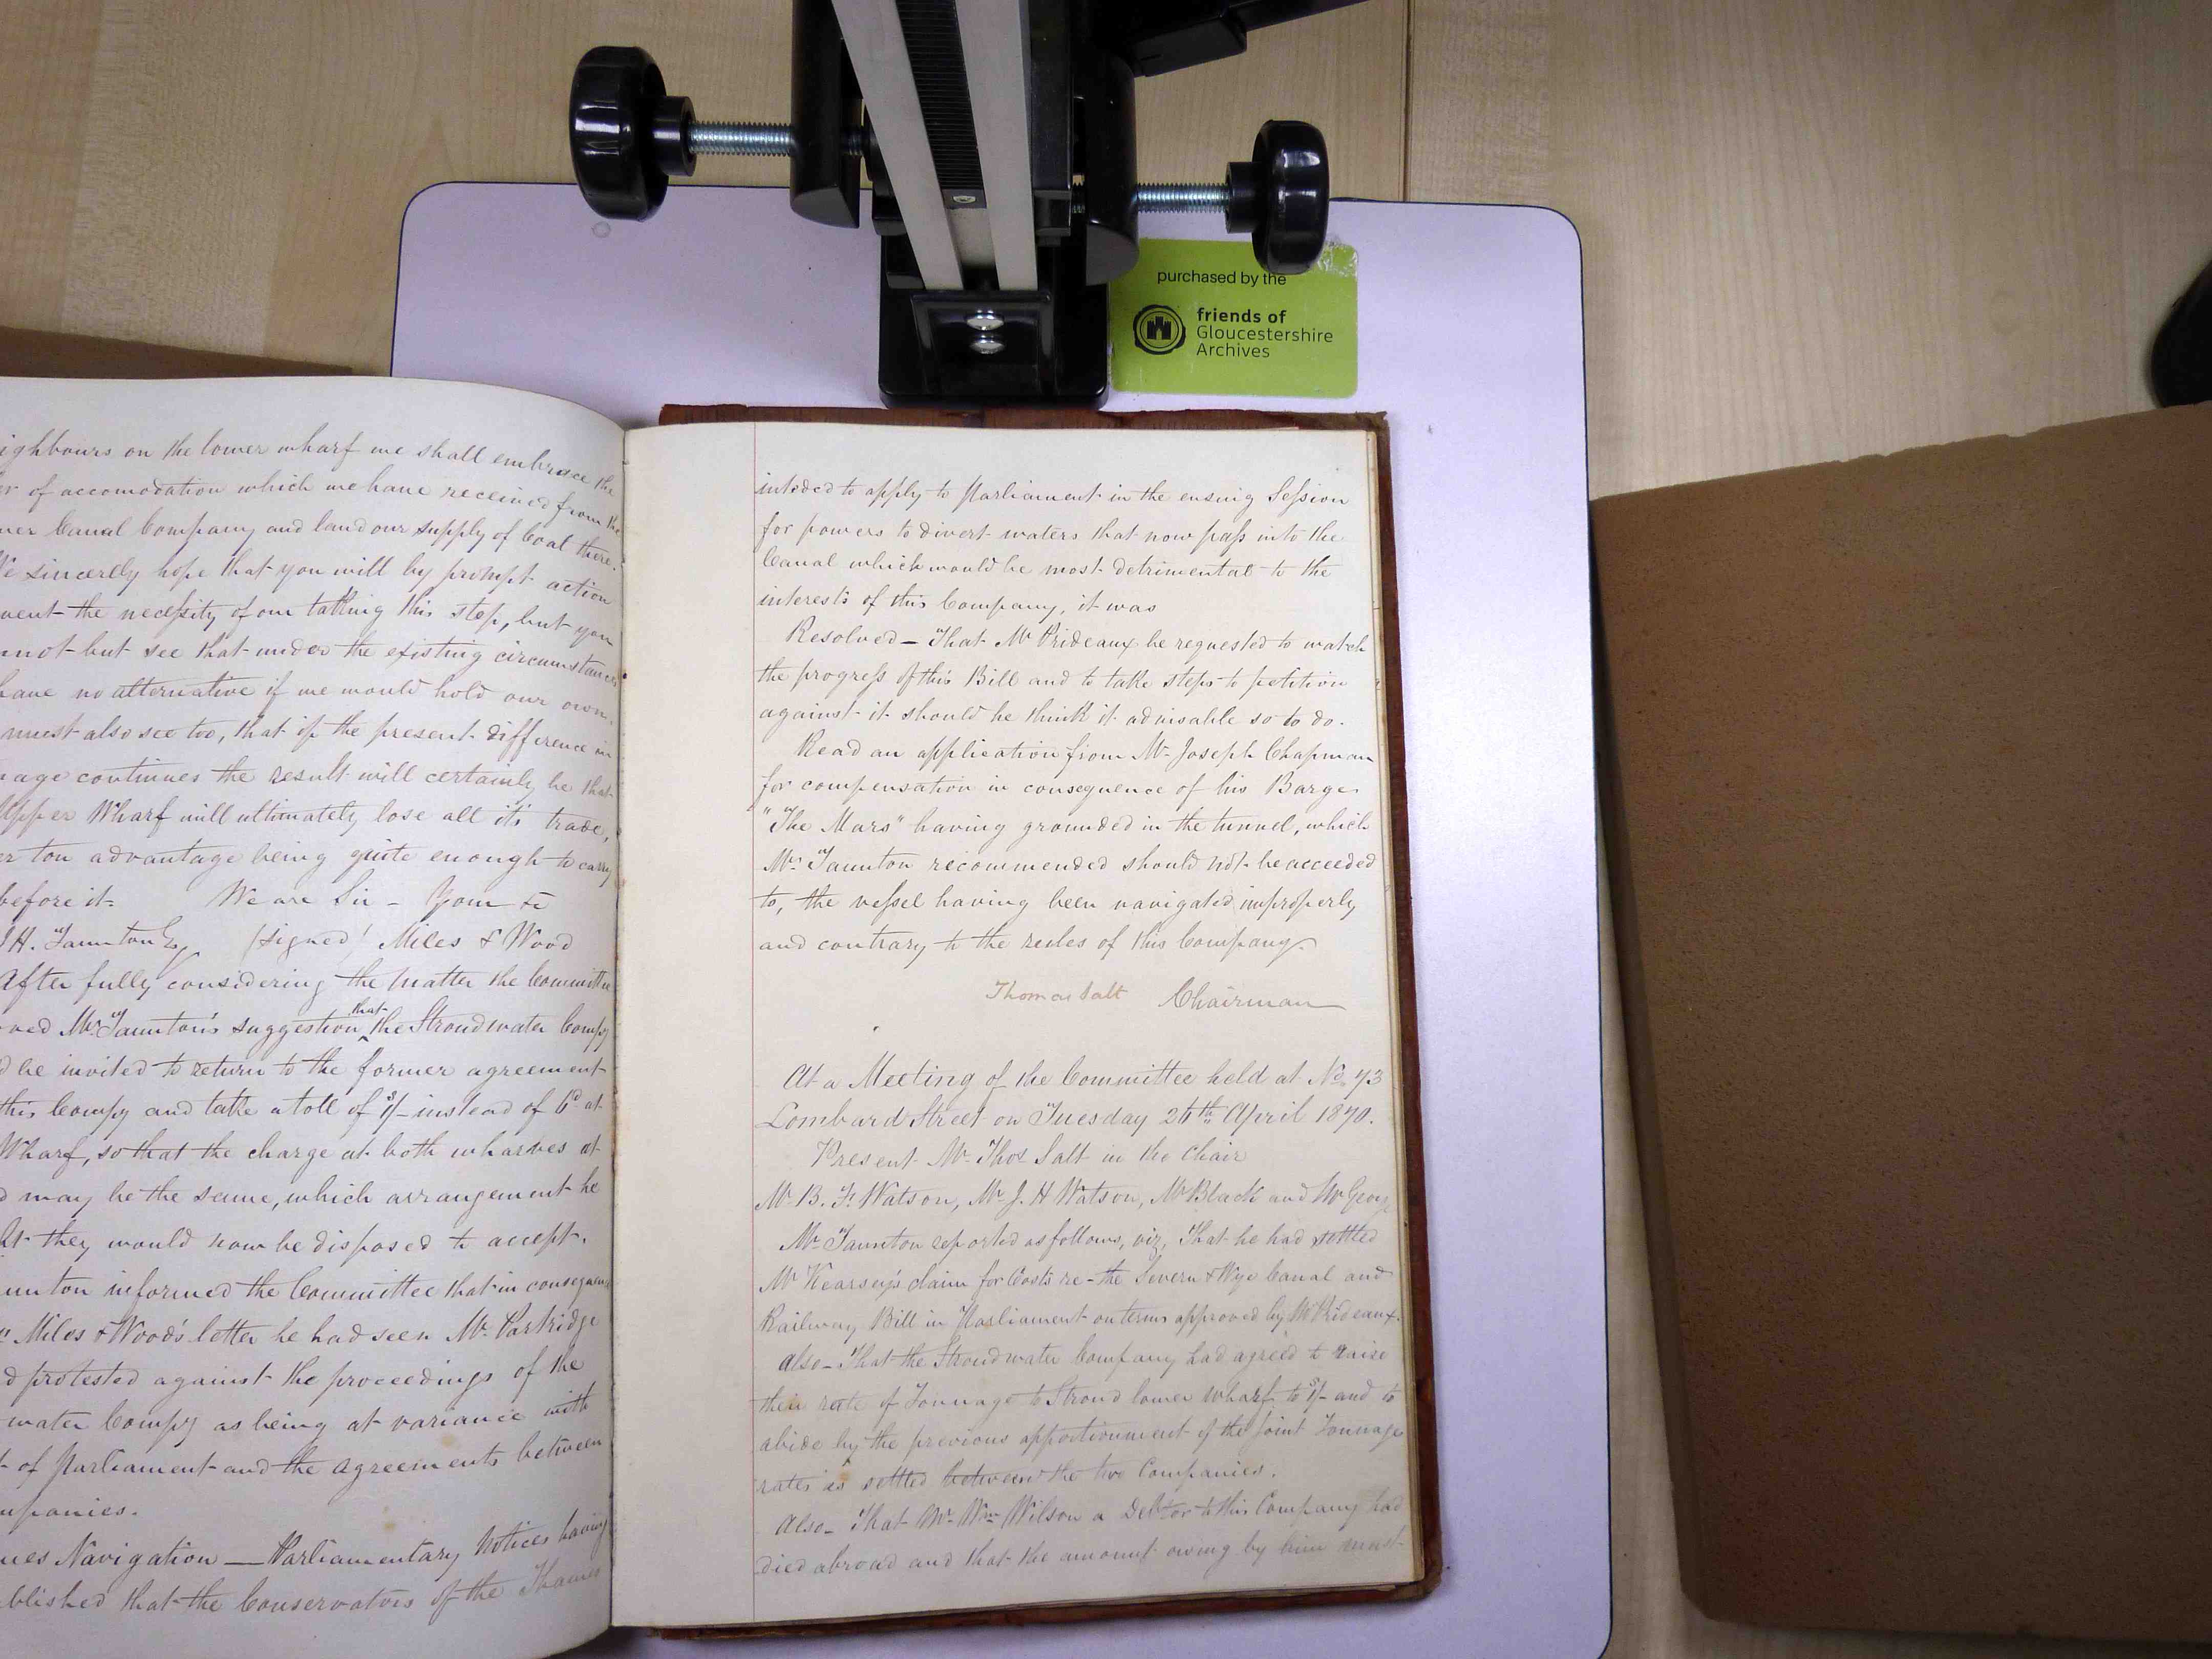 purchased by the
friends of
Gloucestershire
Archives
ighbours on the lower wharf we shall embrace the
r of accomodation which we have received from the
mes Canal Company and land our supply of Coal there.
We sincerely hope that you will by prompt action
vent the necessity of our talking this step, but you
nnot but see that under the existing circumstances
have no alternative if we would hold our own.
must also see too, that if the present difference in
nage continues the result will certainly be that
Upper Wharf will ultimately lose all it's trade,
er ton advantage being quite enough to carry
before it. We are Sir - Your &c
J H. Taunton Esq (signed) Miles & Wood
After fully considering the matter the Committee
ved Mr Taunton's suggestion that the Stroudwater Compy
d be invited to return to the former agreement
this Compy and take a toll of 1/- instead of 6d at
Wharf, so that the charge at both wharves at
d may be the same, which arrangement he
lt they would now be disposed to accept.
unton informed the Committee that in consequence
Miles & Wood's letter he had seen Mr. Partridge
d protested against the proceedings of the
water Compy as being at variance with
t of Parliament and the agreements between
mpanies.
mes Navigation — Parliamentary Notices having
blished that the Conservators of the Thames
intended to apply to Parliament in the ensuing Session
for powers to divert waters that now pass into the
Canal which would be most detrimental to the
interests of this Company, it was
Resolved - That Mr Prideaux be requested to watch
the progress of this Bill and to take steps to petition
against it should he think it advisable so to do.
Read an application from Mr Joseph Chapman
for compensation in consequence of his Barge
"The Mars" having grounded in the tunnel, which
Mr Taunton recommended should not be acceeded
to, the vessel having been navigated improperly
and contrary to the rules of this Company.
Thomas Salt Chairman
At a Meeting of the Committee held at No 73
Lombard Street on Tuesday 26th April 1870.
Present Mr Thos Salt in the Chair
Mr B. F. Watson, Mr J. H Watson, Mr Black and Mr George
Mr Taunton reported as follows, viz, That he had settled
Mr Kearsey's claim for Costs re - the Severn & Wye Canal and
Railway Bill in Parliament on terms approved by Mr Prideaux.
Also - That the Stroudwater Company had agreed to raise
their rate of Tonnage to Stroud lower wharf to 1/- and to
abide by the previous apportionment of the joint Tonnage
rates as settled between the two Companies.
Also - That Mr Wm Wilson a Debtor to this Company had
died abroad and that the amount owing by him must